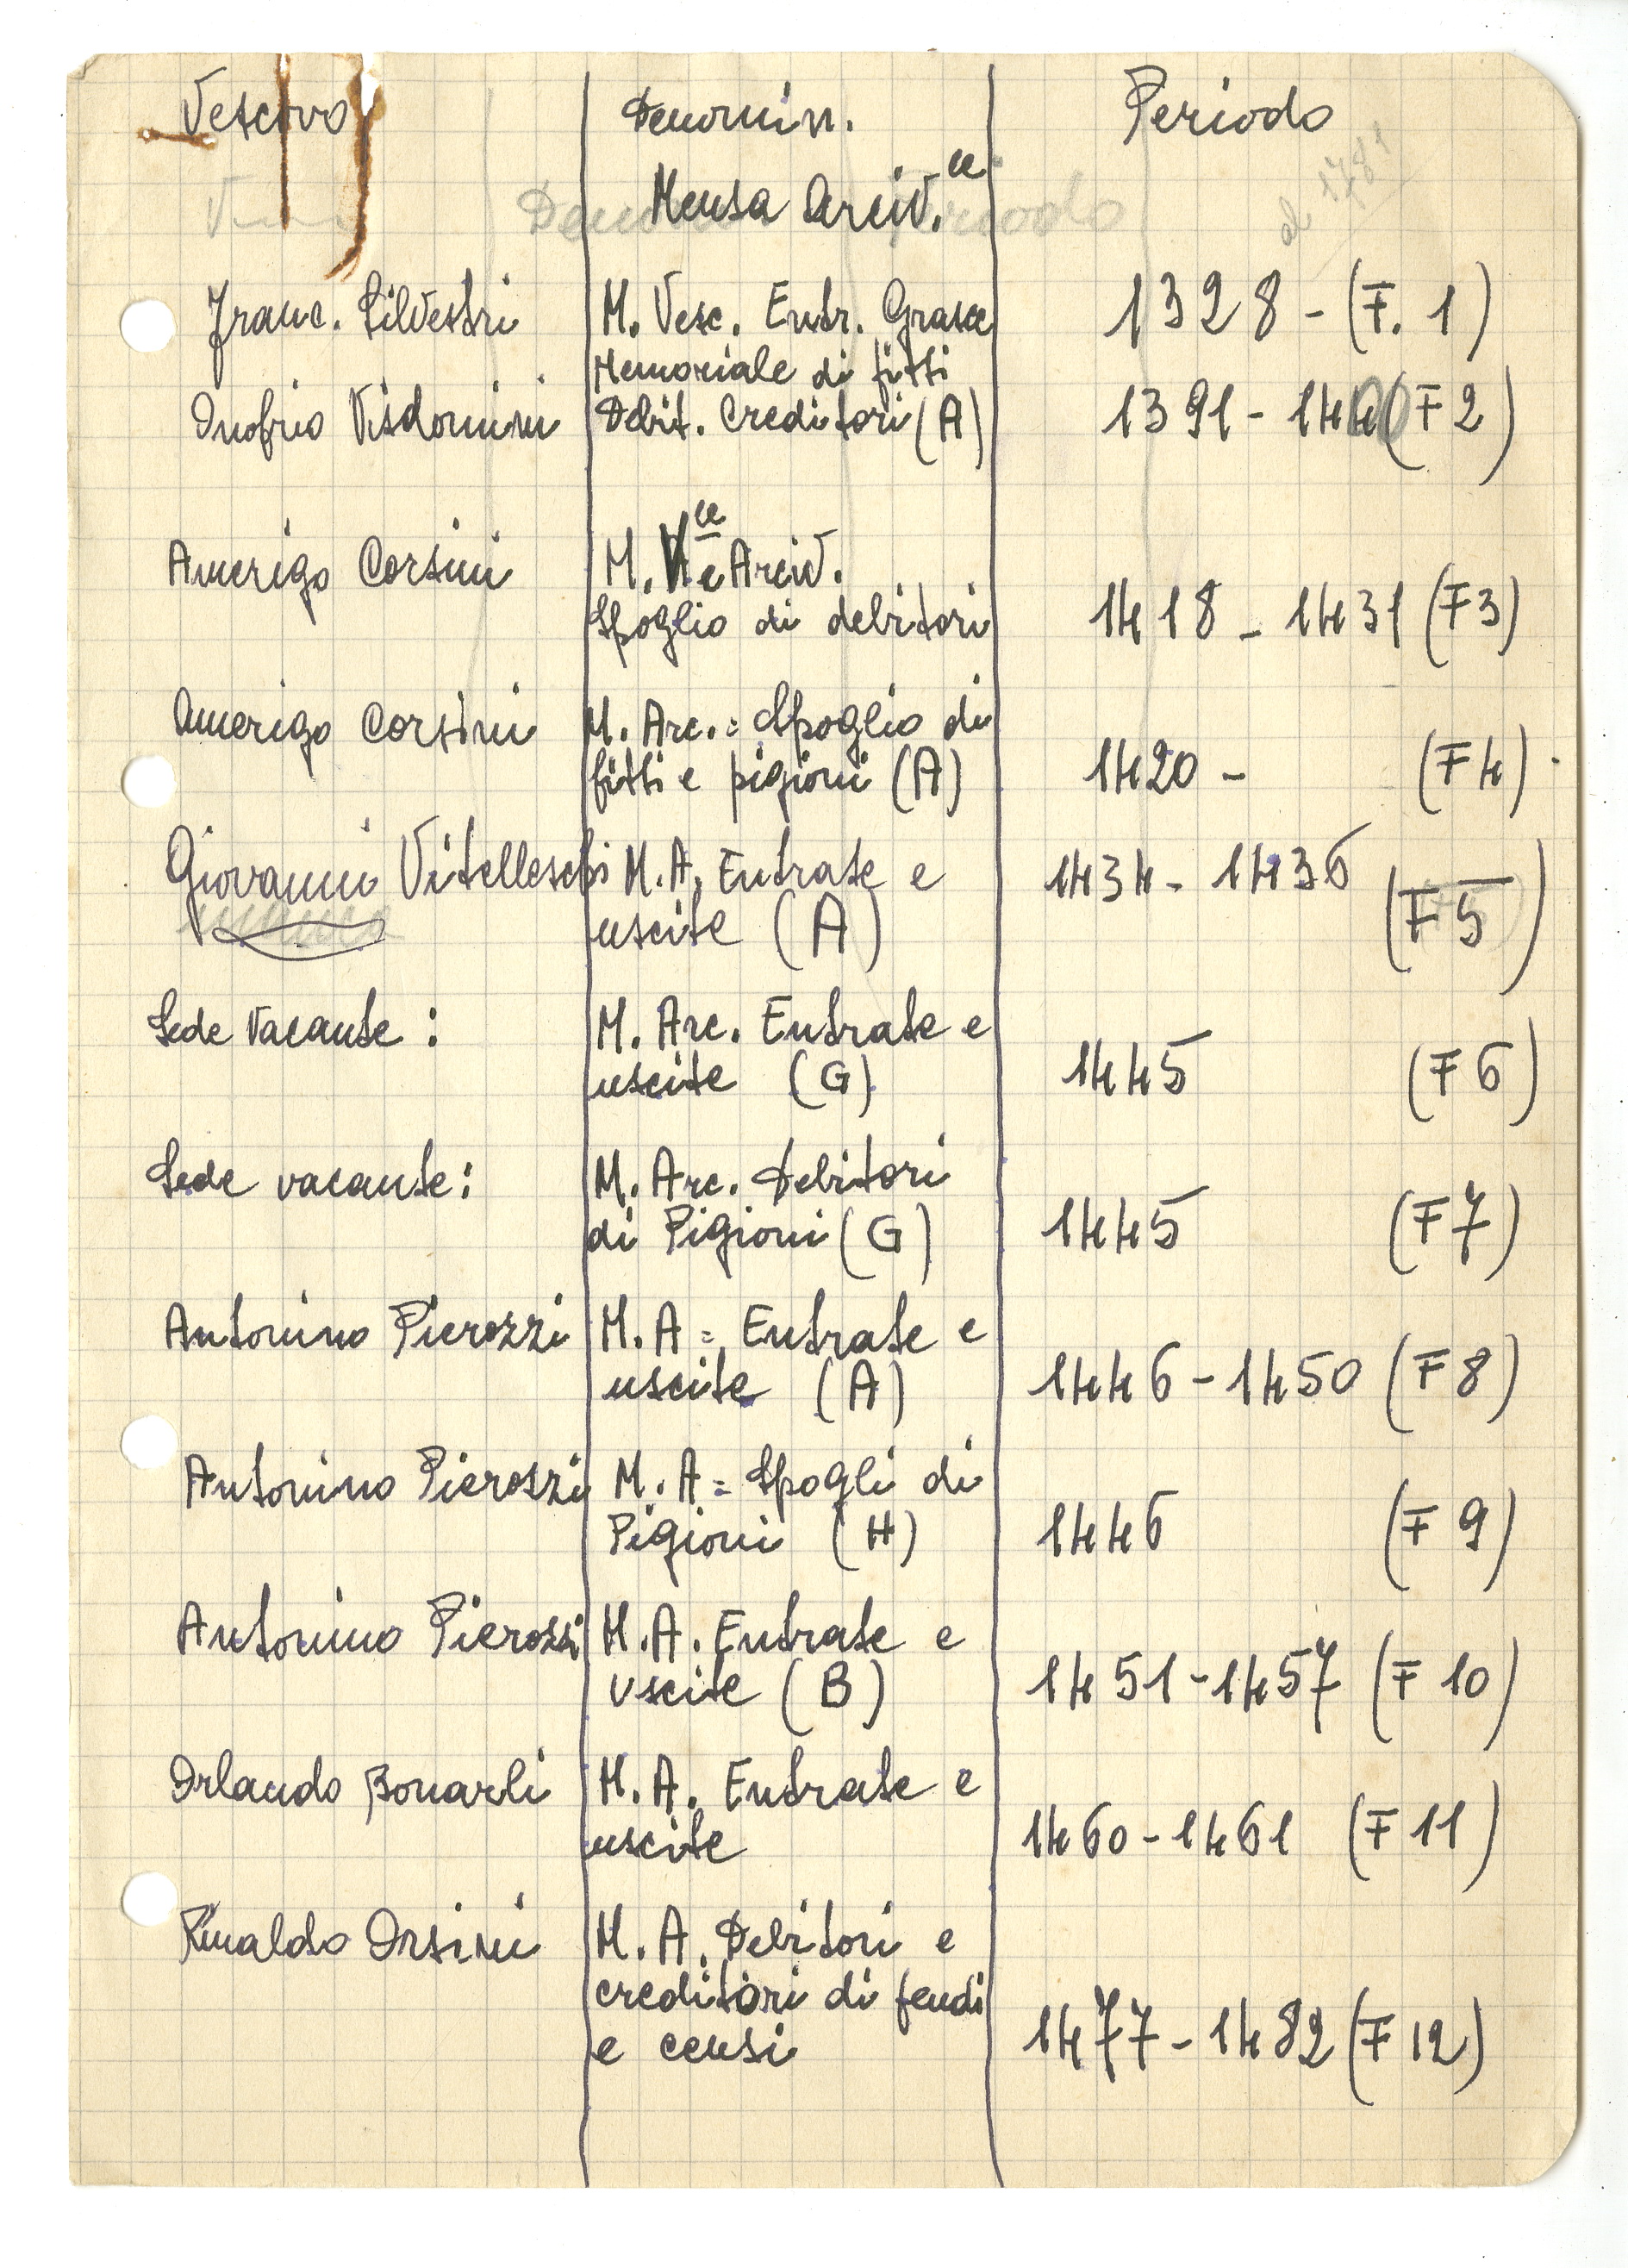 Vescovo Denomin. Periodo
Mensa Arciv.le
Denom Periodo al 1781
Franc. Silvestri M. Vesc. Entr. Grasce 1328 - (F. 1)
Memoriale di fitti
Onofrio Visdomini Debit. Creditori (A) 1391 - 1400 (F 2)
Amerigo Corsini M. Arciv.
Spoglio di debitori 1418 - 1431 (F3)
Amerigo Corsini M. Arc. = Spoglio di
fitti e pigioni (A) 1420 - (F 4)
Giovanni Vitelleschi M. A. Entrate e 1434 - 1436
uscite (A) (F 5)
Sede Vacante : M. Arc. Entrate e
uscite (G) 1445 (F 6)
Sede vacante : M. Arc. Debitori
di Pigioni (G) 1445 (F 7)
Antonino Pierozzi M. A = Entrate e
uscite (A) 1446 - 1450 (F 8)
Antonino Pierozzi M. A = Spogli di
Pigioni (H) 1446 (F 9)
Antonino Pierozzi M. A. Entrate e
Uscite (B) 1451 - 1457 (F 10)
Orlando Bonarli M. A. Entrate e
uscite 1460 - 1461 (F 11)
Rinaldo Orsini M. A. Debitori e
creditori di feudi
e censi 1477 - 1482 (F 12)